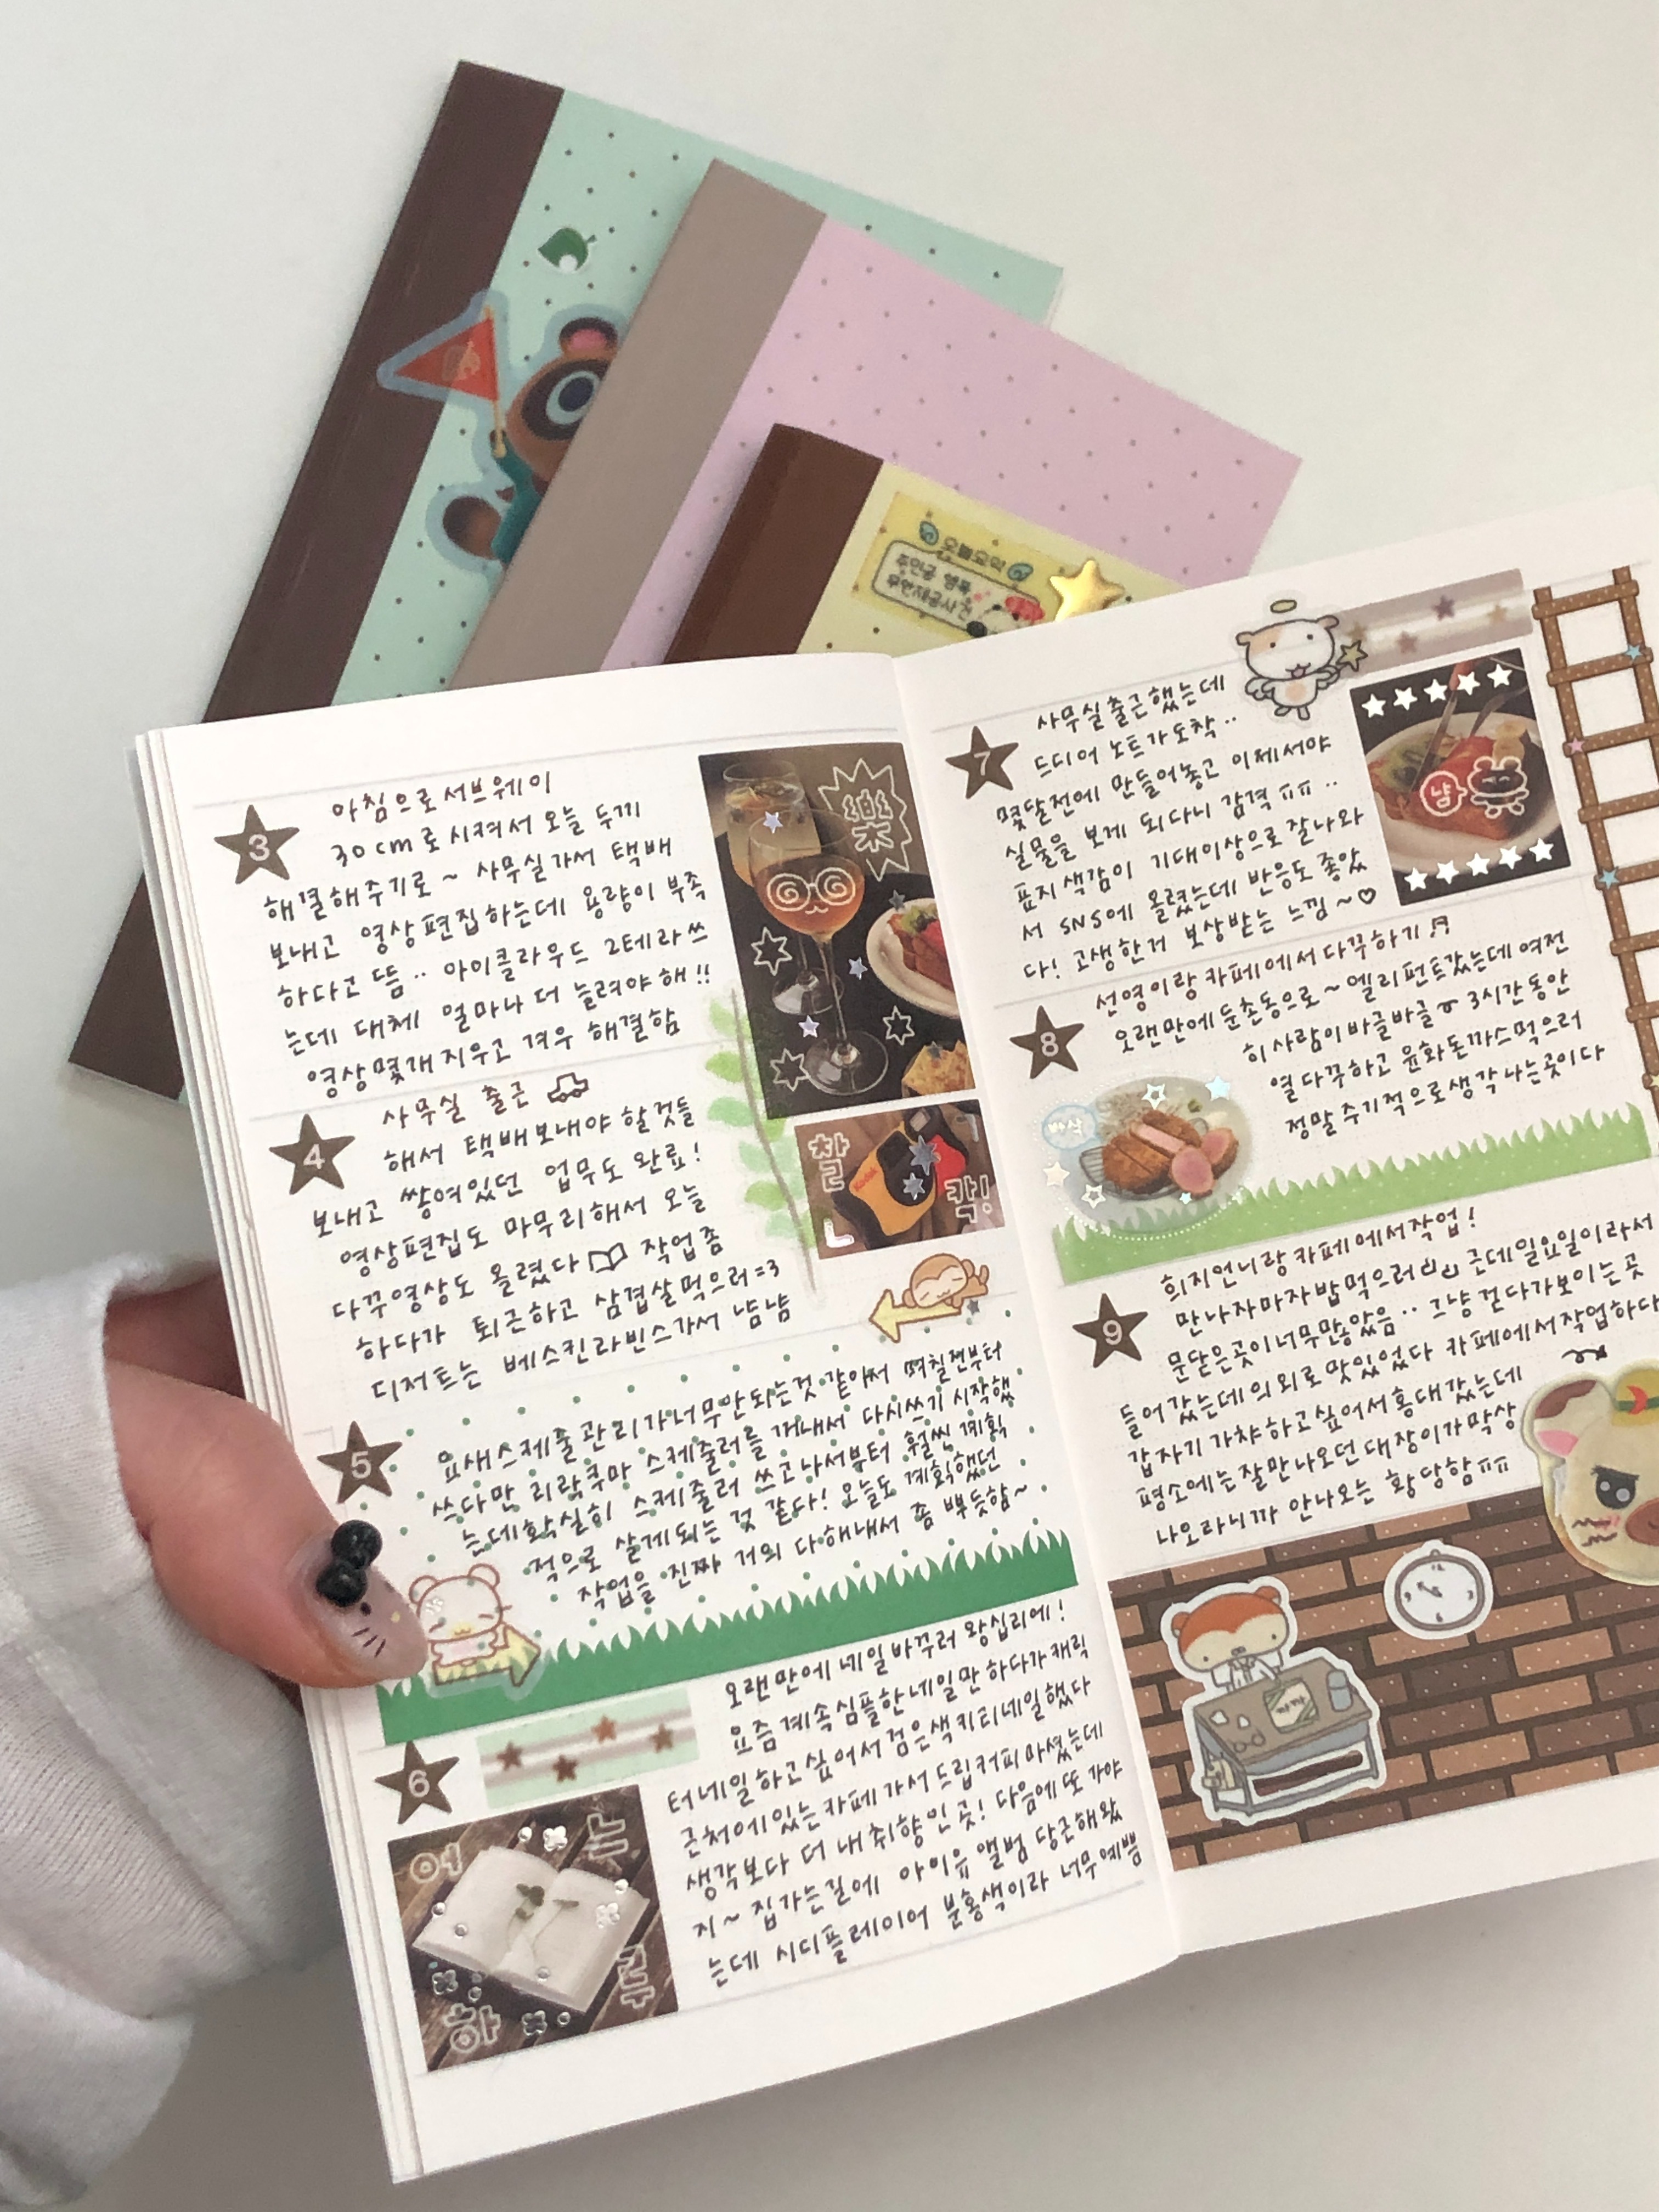 오늘요약
주인공 행복
무한제공사건
3
아침으로 서브웨이
30cm로 시켜서 오늘 두끼
해결해주기로~ 사무실가서 택배
보내고 영상편집하는데 용량이 부족
하다고 뜸.. 아이클라우드 2테라쓰
는데 대체 얼마나 더 늘려야 해!!
영상몇개지우고 겨우 해결함
樂
4
사무실 출근
해서 택배보내야 할것들
보내고 쌓여있던 업무도 완료!
영상편집도 마무리해서 오늘
다꾸영상도 올렸다 작업좀
하다가 퇴근하고 삼겹살먹으러=3
디저트는 베스킨라빈스가서 냠냠
찰
칵!
Kodak
5
요새스케줄관리가너무안되는것같아서 며칠전부터
쓰다만 리락쿠마 스케줄러를 꺼내서 다시쓰기 시작했
는데확실히 스케줄러 쓰고나서부터 훨씬 계획
적으로 살게되는 것 같다! 오늘도 계획했던
작업을 진짜 거의 다해내서 좀 뿌듯함~
6
오랜만에 네일 바꾸러 왕십리에!
요즘계속심플한네일만 하다가캐릭
터네일하고싶어서 검은색키티네일했다
근처에있는카페가서드립커피마셨는데
생각보다 더 내취향인 곳! 다음에 또가야
지~ 집가는길에 아이유앨범 당근해왔
는데 시디플레이어 분홍색이라 너무예쁨
여
하
루
7
사무실출근했는데
드디어 노트가도착..
몇달전에 만들어놓고 이제서야
실물을 보게 되다니 감격ㅠㅠ..
표지색감이 기대이상으로 잘나와
서 SNS에 올렸는데 반응도 좋았
다! 고생한거 보상받는 느낌~♡
냠
8
선영이랑카페에서다꾸하기
오랜만에둔촌동으로~엘리펀트갔는데여전
히사람이바글바글 3시간동안
열다꾸하고 윤화돈까스먹으러
정말주기적으로생각나는곳이다
바삭
9
희지언니랑카페에서작업!
만나자마자밥먹으러 근데일요일이라서
문닫은곳이너무많았음.. 그냥걷다가보이는곳
들어갔는데의외로맛있었다 카페에서작업하다
갑자기가챠하고싶어서홍대갔는데
평소에는잘만나오던대장이가막상
나오라니까 안나오는 황당함ㅠㅠ